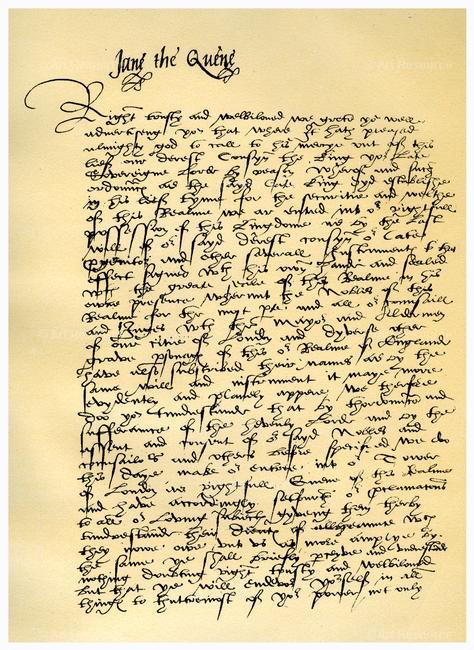 Jane the Quene
Right trusty and welbiloved we grete ye well
advertising you that where it hath pleased
almighty god to call to his mercye out of this
lief our derest Cousyn the King yor late
Sovereigne Lorde by reason wherof and suche
ordenances as the sayd late King dyd establishe
in his lief tyme for the securitie and wealthe
of this Realme we ar entred into or rightfull
possession of this Kingdome as by the last
will of or sayd derest cousyn or late
progenitor and other severall Instruments to that
effect signed wth his own hande and sealed
wth the greate seale of this Realme in his
owne presence wherunto the Nobles of this
Realme for the most pte and all or counsaill
and Juges wth the Mayor and Aldermen
of our citie of London and dyverse other
grave psonages of this or Realme of England
have also subscribed their names as by the
same will and instrument it maye more
evydently and plainely appere we therfore
doo you tunderstande that by thordinance and
sufferaunce of the hevenly Lorde and by the
assent and consent of or sayd Nobles and
counsaillors and others before specifyed we do
this daye make or entree into or Tower
of London as rightfull Quene of this Realme
and have accordingly sett furth or proclamacons
to all or loving subiects gyveng them therby
tunderstande their duetyes of allegeaunce wch
they nowe owe unto us as more amplye by
the same ye shall briefly pceyve and understand
nothing doubting right trusty and welbiloved
but that ye will endevor yorself in all
things to thuttermost of yor power not only